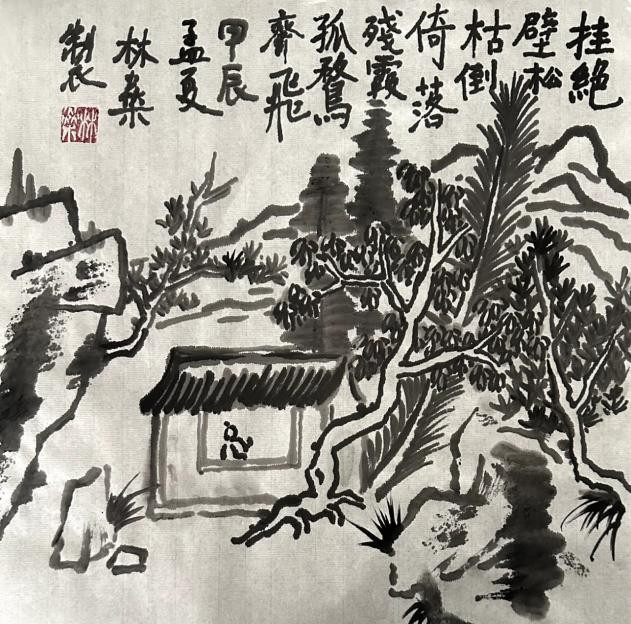 挂絕
壁松
枯倒
倚落
殘霞
孤鶩
齊飛
甲辰
孟夏
林燊
製